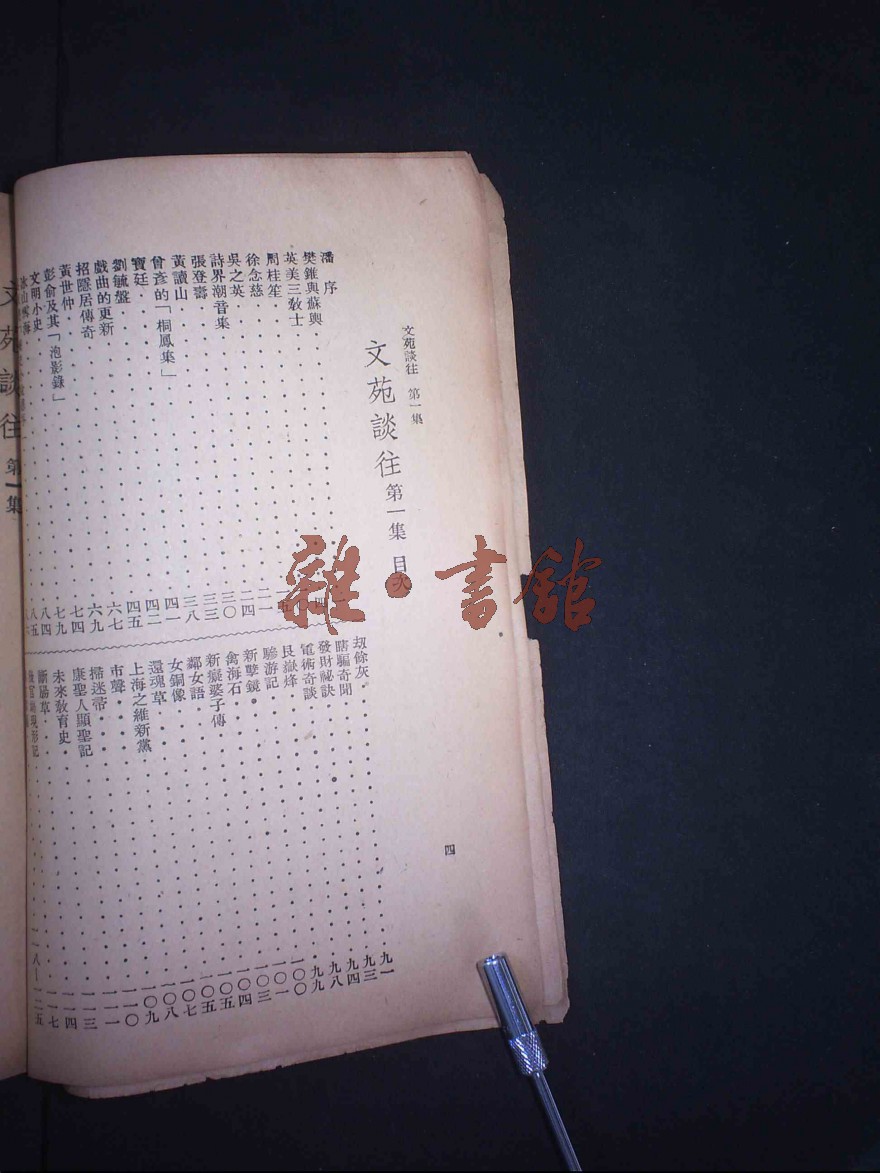 文苑談往 第一集
文苑談往 第一集 目次
潘序
樊錐與蘇輿 四
英美三教士
周桂笙
徐念慈 二一
吳之英 二四
詩界潮音集 三〇
張登壽 三三
黃讀山 三八
曾彥的「桐鳳集」 四一
寶廷 四二
劉毓盤 四五
戲曲的更新 六七
招隱居傳奇 六九
黃世仲 七四
彭俞及其「泡影錄」 七九
文明小史 八四
冰山雪海 八五
劫餘灰 九一
瞎騙奇聞 九三
發財祕訣 九四
電術奇談 九八
艮嶽烽 九九
驂游記 一〇一
新孽鏡 一〇三
禽海石 一〇四
新癡婆子傳 一〇五
鄰女語 一〇五
女銅像 一〇七
還魂草 一〇八
上海之維新黨 一〇九
市聲 一一〇
掃迷帚 一一一
康聖人顯聖記 一一三
未來教育史 一一四
斷腸草 一一七
官場現形記 一一八—一二五
四
文苑談往 第一集
雜·書館